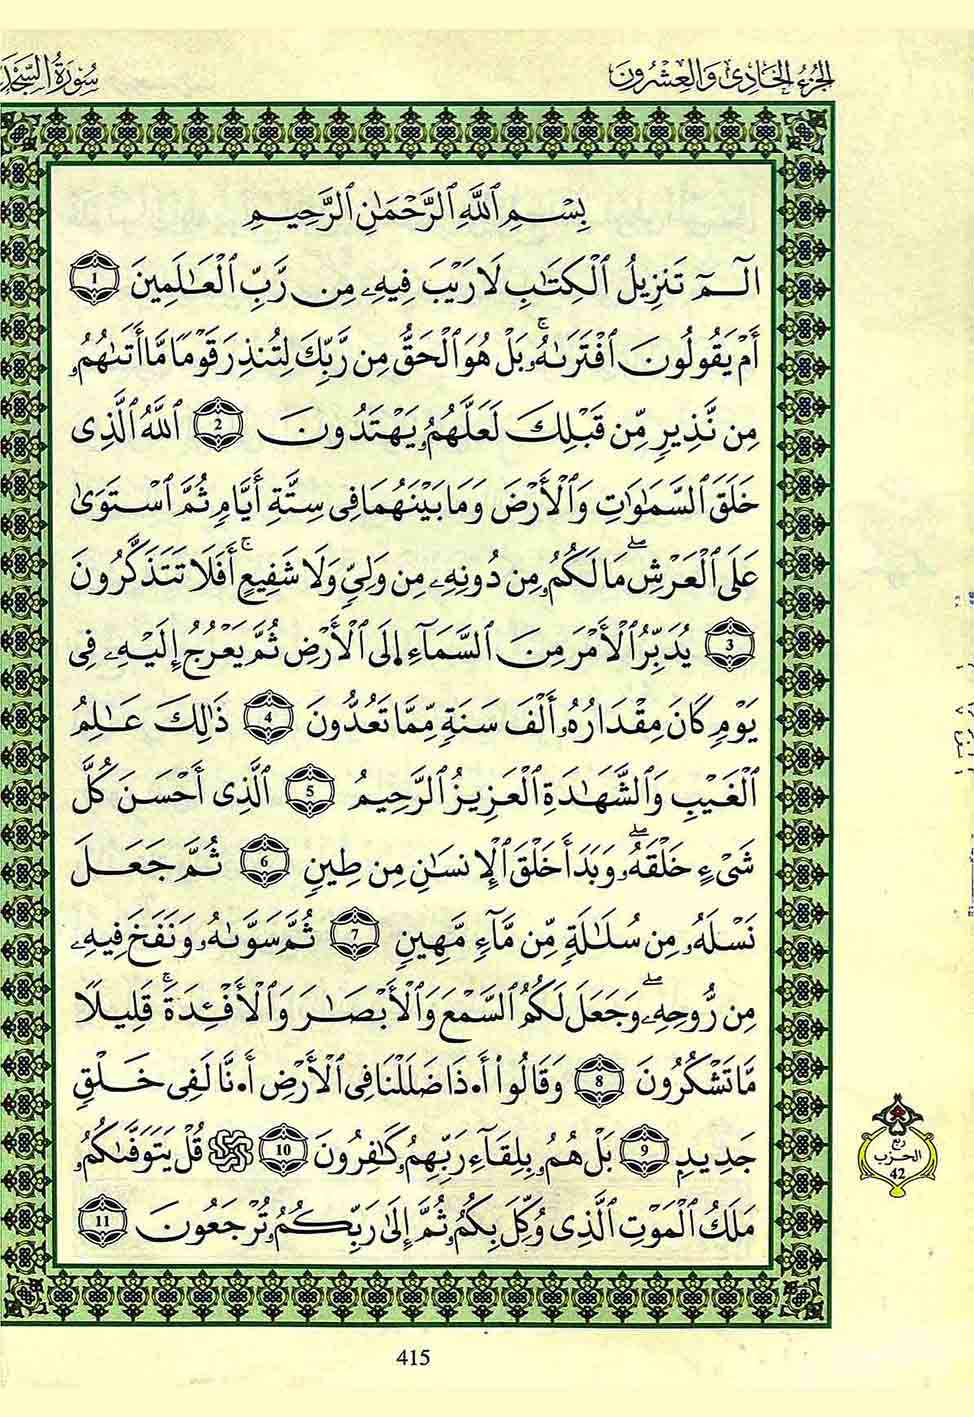 الجزء الحادي والعشرون
سورة السجد
بِسْمِ ٱللَّهِ ٱلرَّحْمَٰنِ ٱلرَّحِيمِ
الٓمٓ تَنزِيلُ ٱلْكِتَٰبِ لَا رَيْبَ فِيهِۦ مِن رَّبِّ ٱلْعَٰلَمِينَ 1
أَمْ يَقُولُونَ ٱفْتَرَىٰهُۚ بَلْ هُوَ ٱلْحَقُّ مِن رَّبِّكَ لِتُنذِرَ قَوْمًا مَّا أَتَىٰهُمُۥ
مِن نَّذِيرٍ مِّن قَبْلِكَ لَعَلَّهُمُۥ يَهْتَدُونَ 2 ٱللَّهُ ٱلَّذِى
خَلَقَ ٱلسَّمَٰوَٰتِ وَٱلْأَرْضَ وَمَا بَيْنَهُمَا فِى سِتَّةِ أَيَّامٍ ثُمَّ ٱسْتَوَىٰ
عَلَى ٱلْعَرْشِۖ مَا لَكُمُۥ مِن دُونِهِۦ مِن وَلِىٍّ وَلَا شَفِيعٍۚ أَفَلَا تَتَذَكَّرُونَ
3 يُدَبِّرُ ٱلْأَمْرَ مِنَ ٱلسَّمَآءِ إِلَى ٱلْأَرْضِ ثُمَّ يَعْرُجُ إِلَيْهِۦ فِى
يَوْمٍ كَانَ مِقْدَارُهُۥ أَلْفَ سَنَةٍ مِّمَّا تَعُدُّونَ 4 ذَٰلِكَ عَٰلِمُ
ٱلْغَيْبِ وَٱلشَّهَٰدَةِ ٱلْعَزِيزُ ٱلرَّحِيمُ 5 ٱلَّذِى أَحْسَنَ كُلَّ
شَىْءٍ خَلْقَهُۥۖ وَبَدَأَ خَلْقَ ٱلْإِنسَٰنِ مِن طِينٍ 6 ثُمَّ جَعَلَ
نَسْلَهُۥ مِن سُلَٰلَةٍ مِّن مَّآءٍ مَّهِينٍ 7 ثُمَّ سَوَّىٰهُۥ وَنَفَخَ فِيهِۦ
مِن رُّوحِهِۦۖ وَجَعَلَ لَكُمُ ٱلسَّمْعَ وَٱلْأَبْصَٰرَ وَٱلْأَفْـِٔدَةَۚ قَلِيلًا
مَّا تَشْكُرُونَ 8 وَقَالُوا۟ أَ.ذَا ضَلَلْنَا فِى ٱلْأَرْضِ أَ.نَّا لَفِى خَلْقٍ
جَدِيدٍ 9 بَلْ هُمُۥ بِلِقَآءِ رَبِّهِمُۥ كَٰفِرُونَ 10 ۞ قُلْ يَتَوَفَّىٰكُمُۥ
مَلَكُ ٱلْمَوْتِ ٱلَّذِى وُكِّلَ بِكُمُۥ ثُمَّ إِلَىٰ رَبِّكُمُۥ تُرْجَعُونَ 11
ربع
الحزب
42
415